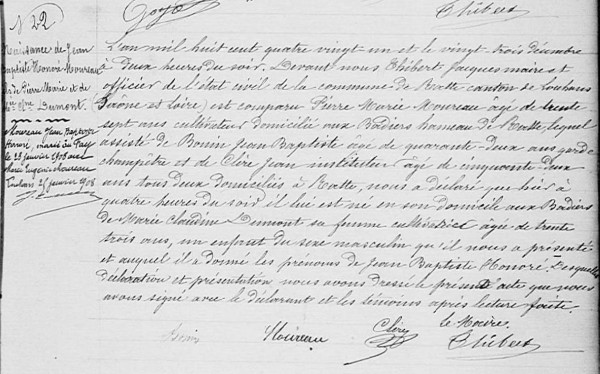 Thibert
N° 22
Naissance de Jean
Baptiste Honoré Moureau
fils de Pierre Marie et de
Dumont.
Moureau Jean Baptiste
Honoré, marié au Fay
le 25 janvier 1908 avec
Marie Eugénie Moureau
Louhans 25 janvier 1908
L'an mil huit cent quatre vingt un et le vingt trois décembre
à deux heures du soir, Devant nous Thibert Jacques maire et
officier de l'état civil de la commune de Ratte canton de Louhans
(Saône et Loire) est comparu Pierre Marie Moureau âgé de trente
sept ans cultivateur domicilié aux Badiers hameau de Ratte, lequel
assisté de Bonin Jean Baptiste âgé de quarante-deux ans garde
champêtre et de Clère Jean instituteur âgé de cinquante-deux
ans tous deux domiciliés à Ratte, nous a déclaré que hier à
quatre heures du soir il lui est né en son domicile aux Badiers
de Marie Claudine Dumont sa femme cultivatrice âgée de trente
trois ans, un enfant du sexe masculin qu'il nous a présenté
et auquel il a donné les prénoms de Jean Baptiste Honoré. Desquelles
déclaration et présentation nous avons dressé le présent acte que nous
avons signé avec le déclarant et les témoins après lecture faite.
Le Maire.
Bonin Moureau Clère Thibert